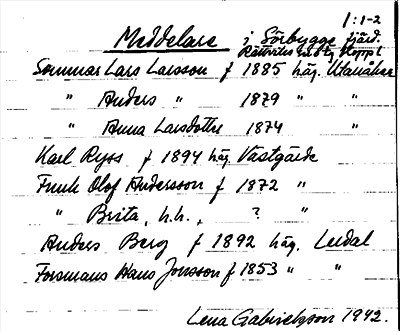 1:1-2
Meddelare i Sörbygge fjärd.
Rättvits
Sommar Lars Larsson f 1885 häg. Utanåker
" Anders " 1879 " "
" Anna Larsdotter 1874 " "
Karl Ryss f 1894 häg Västgärde
Funk Olof Andersson f 1872 "
" Brita, h.h., ? "
Anders Berg f 1892 häg. Lerdal
Forsmans Hans Jonsson f 1853 " "
Lena Gabrielsson 1942.